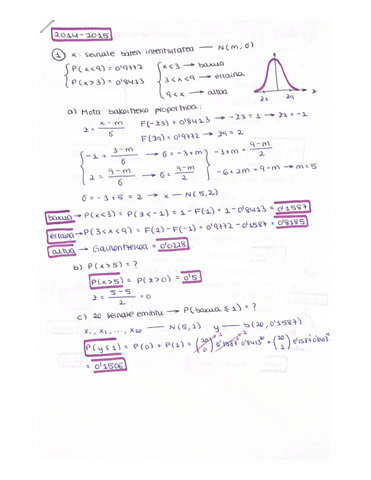 2014-2015
1 x: seinale baten intentsitatea — N(m, σ)
P(x<9) = 0'9772
x<3 → baxua
P(x>3) = 0'8413
3<x<9 → ertaina
9<x → altua
z₃ z₉ x
a) Mota bakoitzeko proportzioa:
z = x-m / σ
F(-z₃) = 0'8413 → -z₃ = 1 → z₃ = -1
F(z₉) = 0'9772 → z₉ = 2
-1 = 3-m / σ → σ = -3+m
-3+m = 9-m / 2
2 = 9-m / σ → σ = 9-m / 2
-6+2m = 9-m → m = 5
σ = -3+5 = 2 → x — N(5,2)
baxua → P(x<3) = P(z<-1) = 1-F(1) = 1-0'8413 = 0'1587
ertaina → P(3<x<9) = F(2)-F(-1) = 0'9772-0'1587 = 0'8185
altua → Gainontzekoa = 0'0228
b) P(x>5) = ?
P(x>5) = P(z>0) = 0'5
z = 5-5 / 2 = 0
c) 20 seinale emititu → P(baxua ≤ 1) = ?
x₁, x₂, ..., x₂₀ — N(5,2) y — b(20, 0'1587)
P(y≤1) = P(0) + P(1) = (20 0) 0'1587⁰ 0'8413²⁰ + (20 1) 0'1587¹ 0'8413¹⁹
= 0'1506